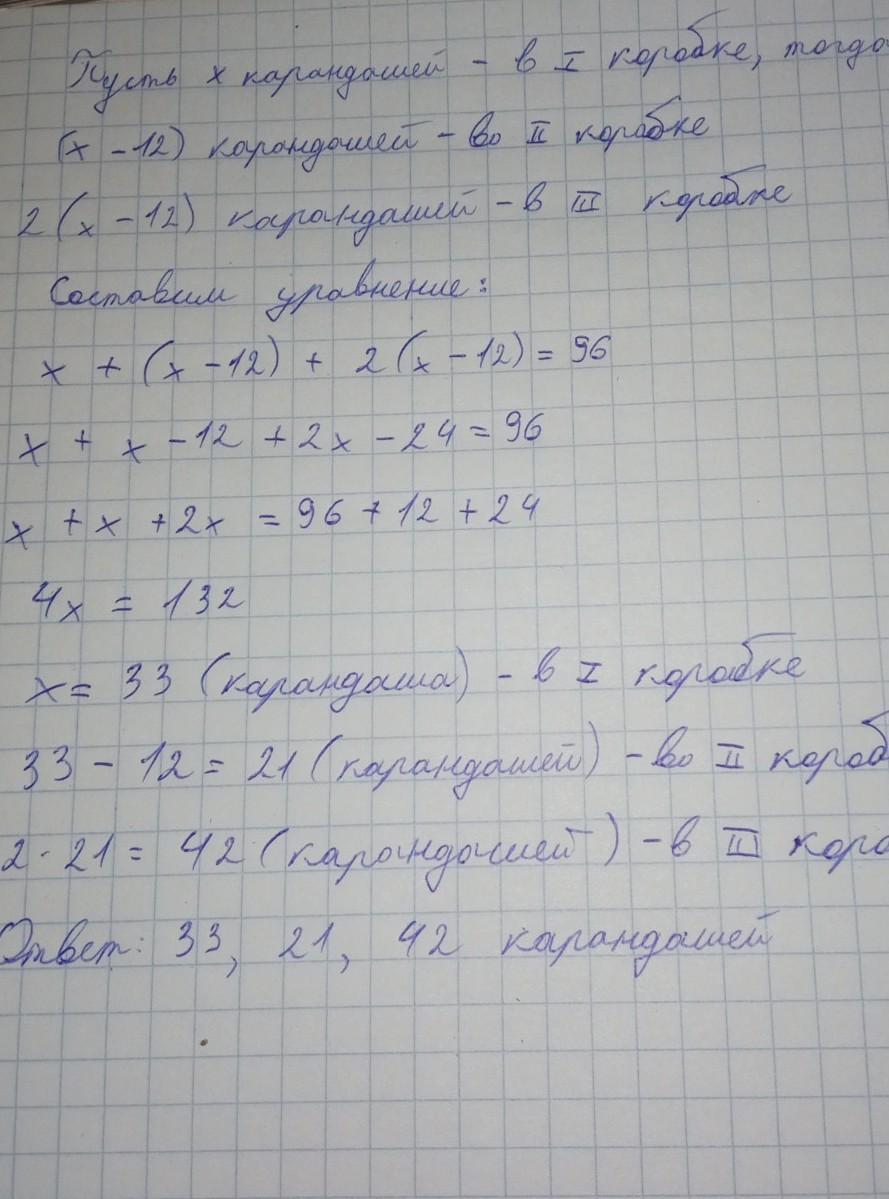 Пусть x карандашей - в I коробке, тогда
(x - 12) карандашей - во II коробке
2(x - 12) карандашей - в III коробке
Составим уравнение:
x + (x - 12) + 2(x - 12) = 96
x + x - 12 + 2x - 24 = 96
x + x + 2x = 96 + 12 + 24
4x = 132
x = 33 (карандаша) - в I коробке
33 - 12 = 21 (карандашей) - во II короб
2 · 21 = 42 (карандашей) - в III коро
Ответ: 33, 21, 42 карандашей